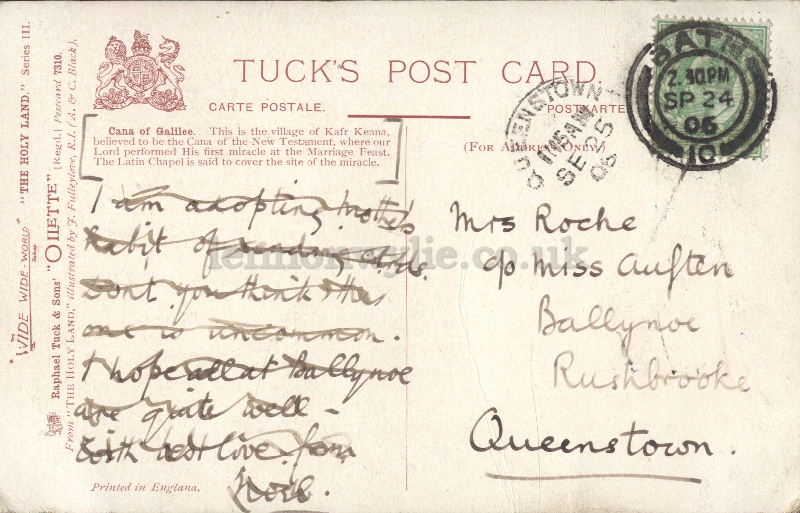 TUCK'S POST CARD.
CARTE POSTALE.
POSTKARTE
(FOR ADDRESS ONLY)
Cana of Galilee. This is the village of Kafr Kenna,
believed to be the Cana of the New Testament, where our
Lord performed His first miracle at the Marriage Feast.
The Latin Chapel is said to cover the site of the miracle.
"WIDE-WIDE-WORLD" "THE HOLY LAND." Series III.
Raphael Tuck & Sons' "OILETTE" [Regd.] Postcard 7310.
From "THE HOLY LAND," illustrated by J. Fulleylove, R.I. (A. & C. Black).
QUEENSTOWN
1 15AM
SE 25
06
BATH
2.30PM
SP 24
06
10
I am adopting Mother's
habit of sending cards.
Don't you think this
one is uncommon.
I hope all at Ballynoe
are quite well -
with best love from
Mrs Roche
c/o Miss Austen
Ballynoe
Rushbrooke
Queenstown.
lennonwylie.co.uk
Printed in England.